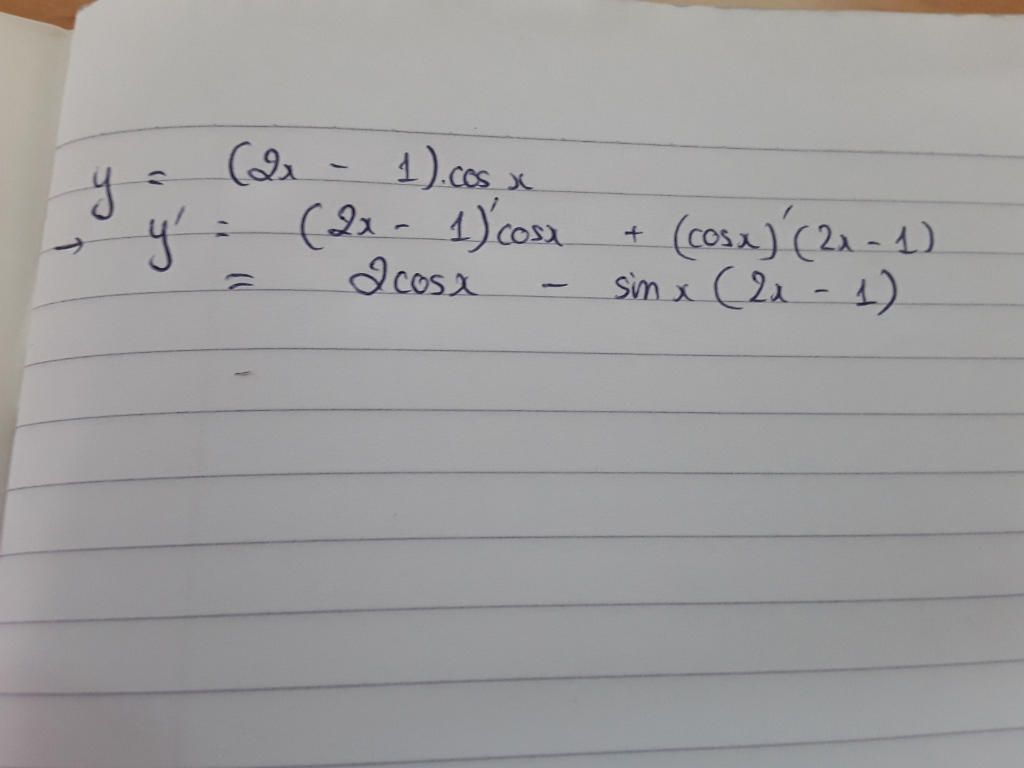 y = (2x - 1).cos x
→ y' = (2x - 1)'cosx + (cosx)'(2x - 1)
= 2cosx - sin x (2x - 1)
-